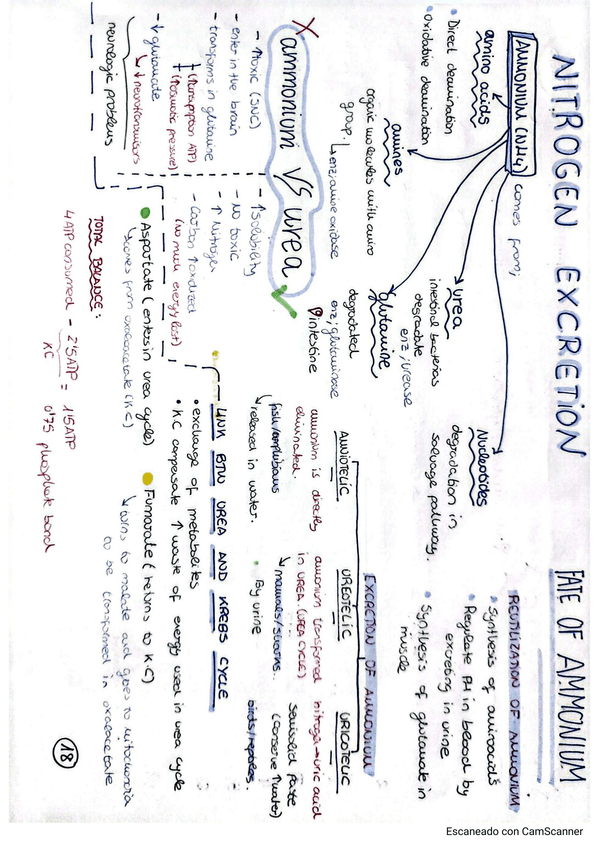 NITROGEN EXCRETION
AMMONIUM (NH4) comes from;
amino acids
• Direct deamination
• Oxidative deamination
amines
organic molecules with amino
group.
↳ enz; amine oxidase
glutamine
enz; glutaminase
degraded
intestine
urea
intestinal bacterias
degradate
enz; urease
Nucleotides
degradation in
salvage pathway.
FATE OF AMMONIUM
REUTILIZATION OF AMMONIUM
• Synthesis of aminoacids
• Regulate PH in blood by
excreting in urine
• Synthesis of glutamate in
muscle
EXCRETION OF AMMONIUM
AMNIOTELIC
amonium is directly
eliminated.
fish/amphibians
↳ relaxed in water.
UREOTELIC
amonium transformed
in UREA. (UREA CYCLE)
↳ mamals/
• By urine
URICOTELIC
nitrogen → uric acid
Semisolid paste
(conserve ↑ water)
birds/reptiles.
X ammonium VS urea ✓
- ↑ toxic (SNC)
- enter in the brain
- transforms in glutamine
↑ (consumption ATP)
↑ (osmotic pressure)
- ↓ glutamate
↳ ↓ neurotransmisors
neurologic problems
- ↑ solubility
- No toxic
- ↑ Nitrogen
- Carbon ↑ oxidized
(no much energy lost)
LINK BTW UREA AND KREBS CYCLE
• exchange of metabolites
• KC compensate ↑ waste of energy used in urea cycle
Aspartate (enters in urea cycle)
↳ comes from oxaloacetate (KC)
Fumarate (returns to KC)
↳ turns to malate and goes to mitochondria
to be transformed in oxalacetate
TOTAL BALANCE:
4 ATP consumed - 2'5 ATP = 1'5 ATP
KC
0'75 phosphate bond
18
Escaneado con CamScanner